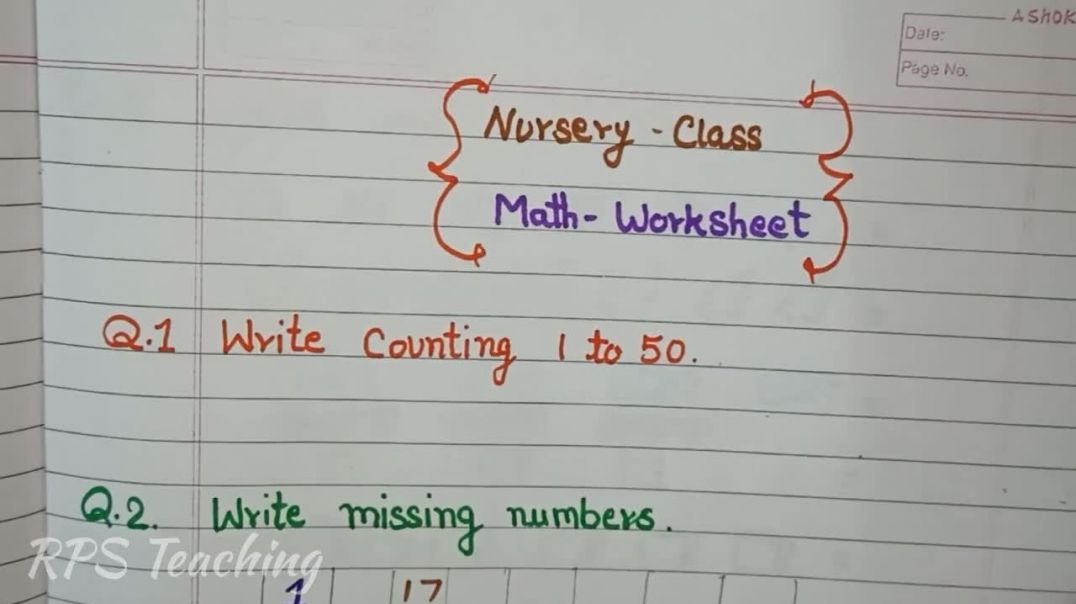 ASHOK
Date:
Page No.
Nursery - Class
Math - Worksheet
Q.1 Write Counting 1 to 50.
Q.2. Write missing numbers.
RPS Teaching
1 17